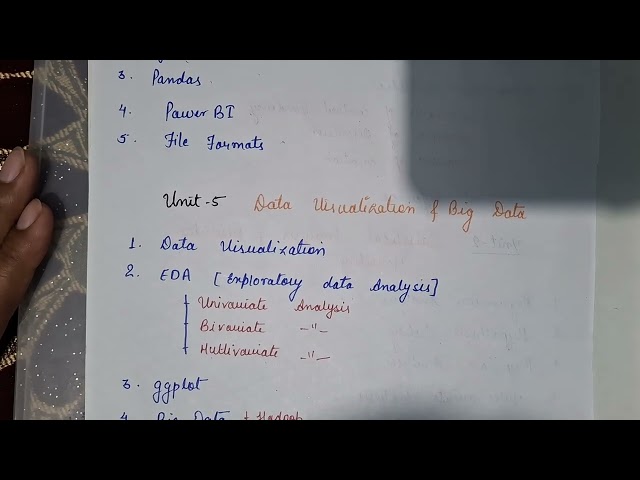 3. Pandas.
4. Power BI
5. File Formats
Unit-5 Data Visualization & Big Data
1. Data Visualization
2. EDA [Exploratory data Analysis]
Univariate Analysis
Bivariate -"-
Multivariate -"-
3. ggplot
4. Big Data + Hadoop